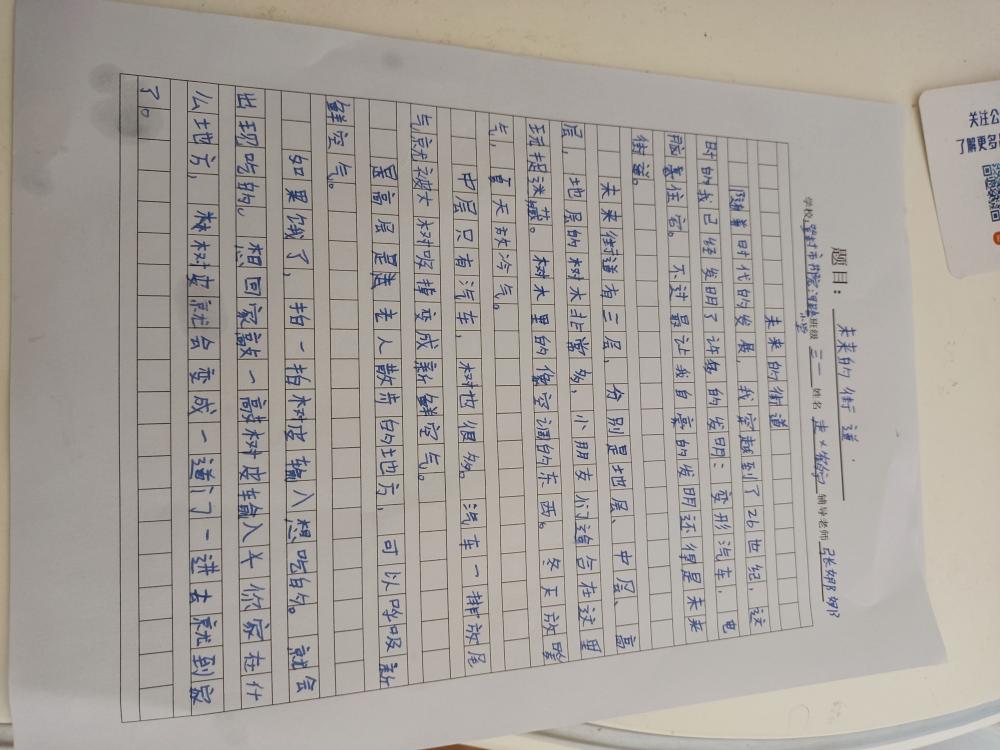 题目：未来的街道
学校 班级 三一 姓名 辅导老师 张娜娜
小学
未来的街道
随着时代的发展，我穿越到了26世纪，这
时的我已经发明了许多的发明：变形汽车、电
脑 住宅。不过最让我自豪的发明还得是未来
街道。
未来街道有三层，分别是地层、中层、高
层，地层的树木非常多，小朋友们适合在这里
玩捉迷藏。树木里的像空调的东西。冬天放暖
气，夏天放冷气。
中层只有汽车，树也很多。汽车一排放尾
气就被大树吸掉变成新鲜空气。
最高层是 老人散步的地方，可以呼吸新
鲜空气。
如果饿了，拍一拍树皮输入想吃的。就会
出现吃的。想回家敲一敲树皮输入 你家在什
么地方，树皮就会变成一道门一进去就到家
了。
关注公
了解更多